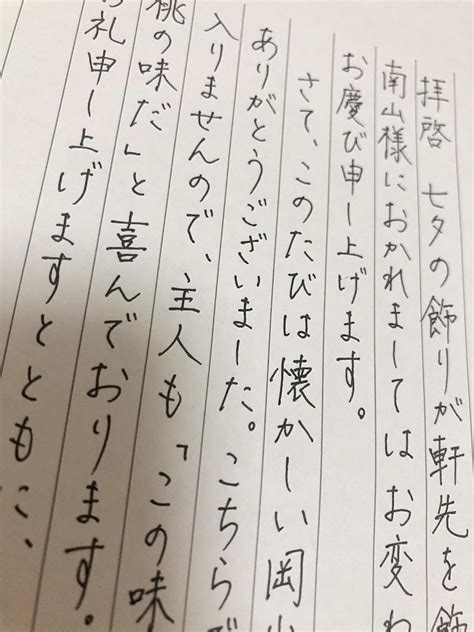 拝啓　七夕の飾りが軒先を飾
南山様におかれましてはお変わ
お慶び申し上げます。
さて、このたびは懐かしい岡山
ありがとうございました。こちらで
入りませんので、主人も「この味
桃の味だ」と喜んでおります。
お礼申し上げますとともに、